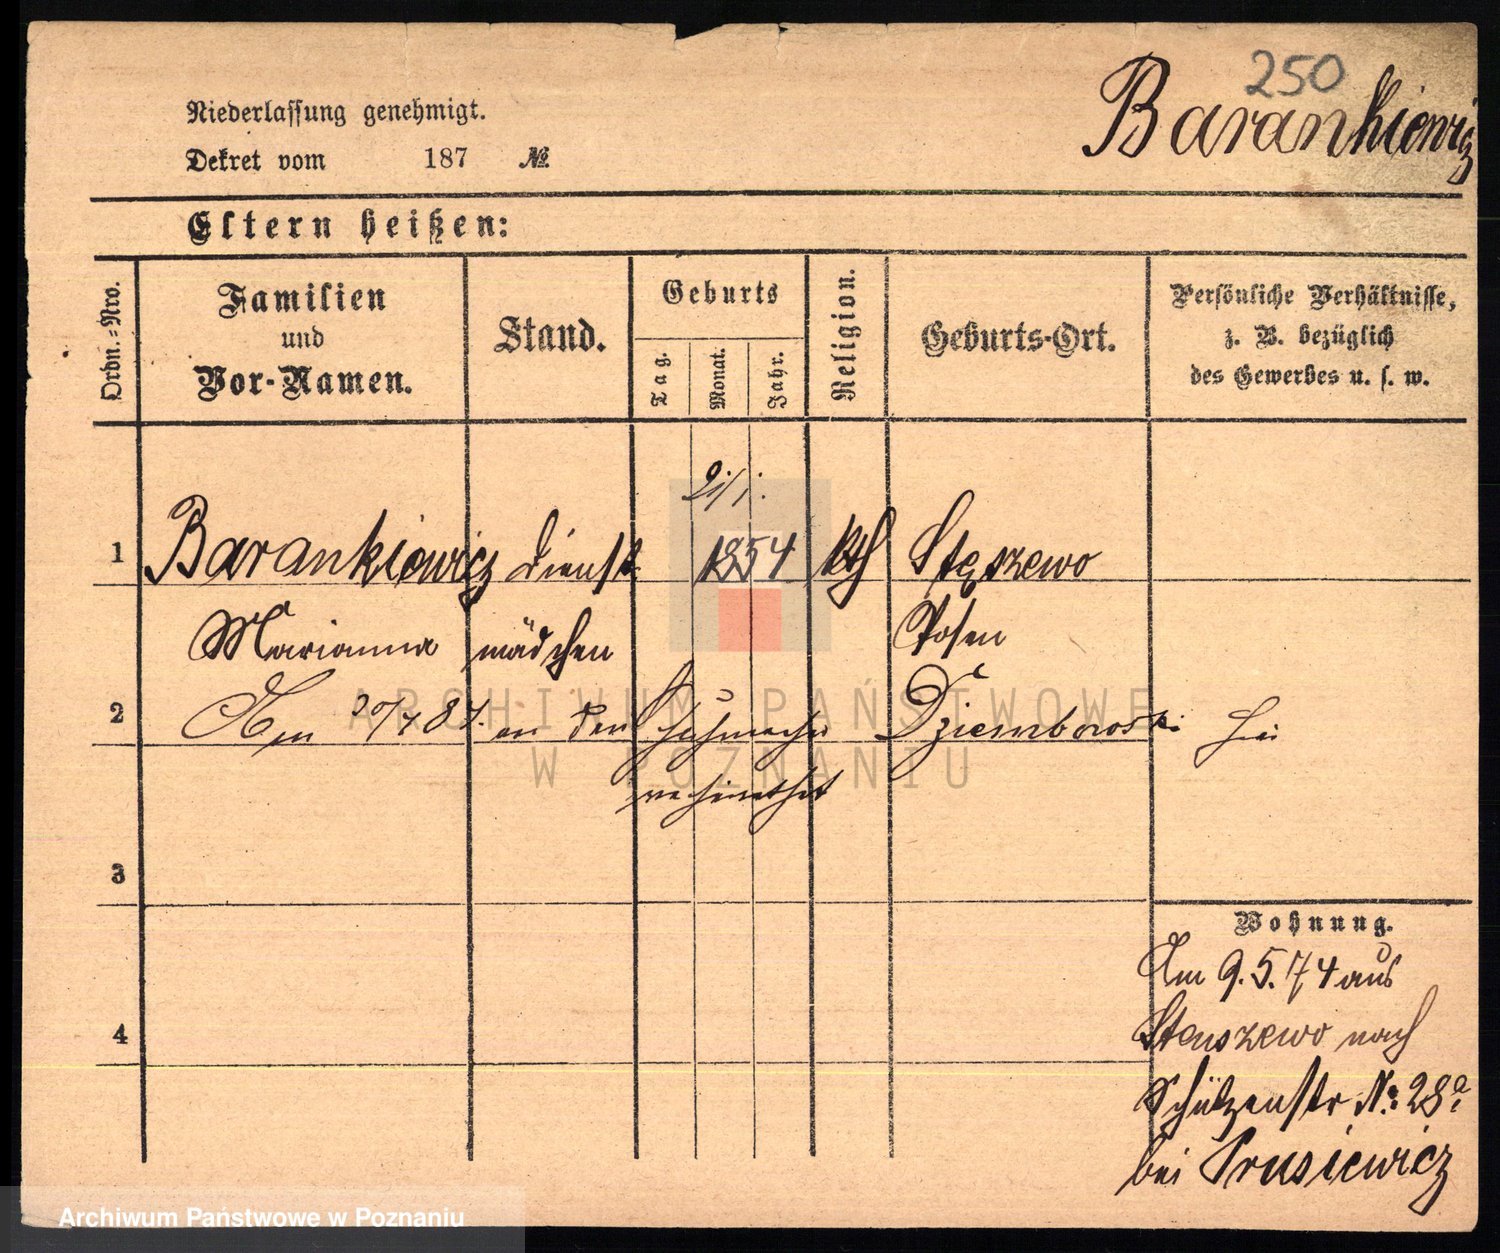 250
Barankiewicz
Niederlassung genehmigt.
Dekret vom 187 №
Eltern heißen:
Ordn.-Nro.
Familien
und
Vor-Namen.
Stand.
Geburts
Tag.
Monat.
Jahr.
Religion.
Geburts-Ort.
Persönliche Verhältnisse,
z. B. bezüglich
des Gewerbes u. s. w.
1 Barankiewicz Dienst 1854 kth Stęszewo
Marianna mädchen Posen
2 Am 20/4 81. an den Schuhmacher Dziemborski hier
verheirathet
3
Wohnung.
Am 9.5.74 aus
4
Stenszewo nach
Schützenstr №. 28a
bei Prusiewicz
ARCHIWUM PAŃSTWOWE
W POZNANIU
Archiwum Państwowe w Poznaniu